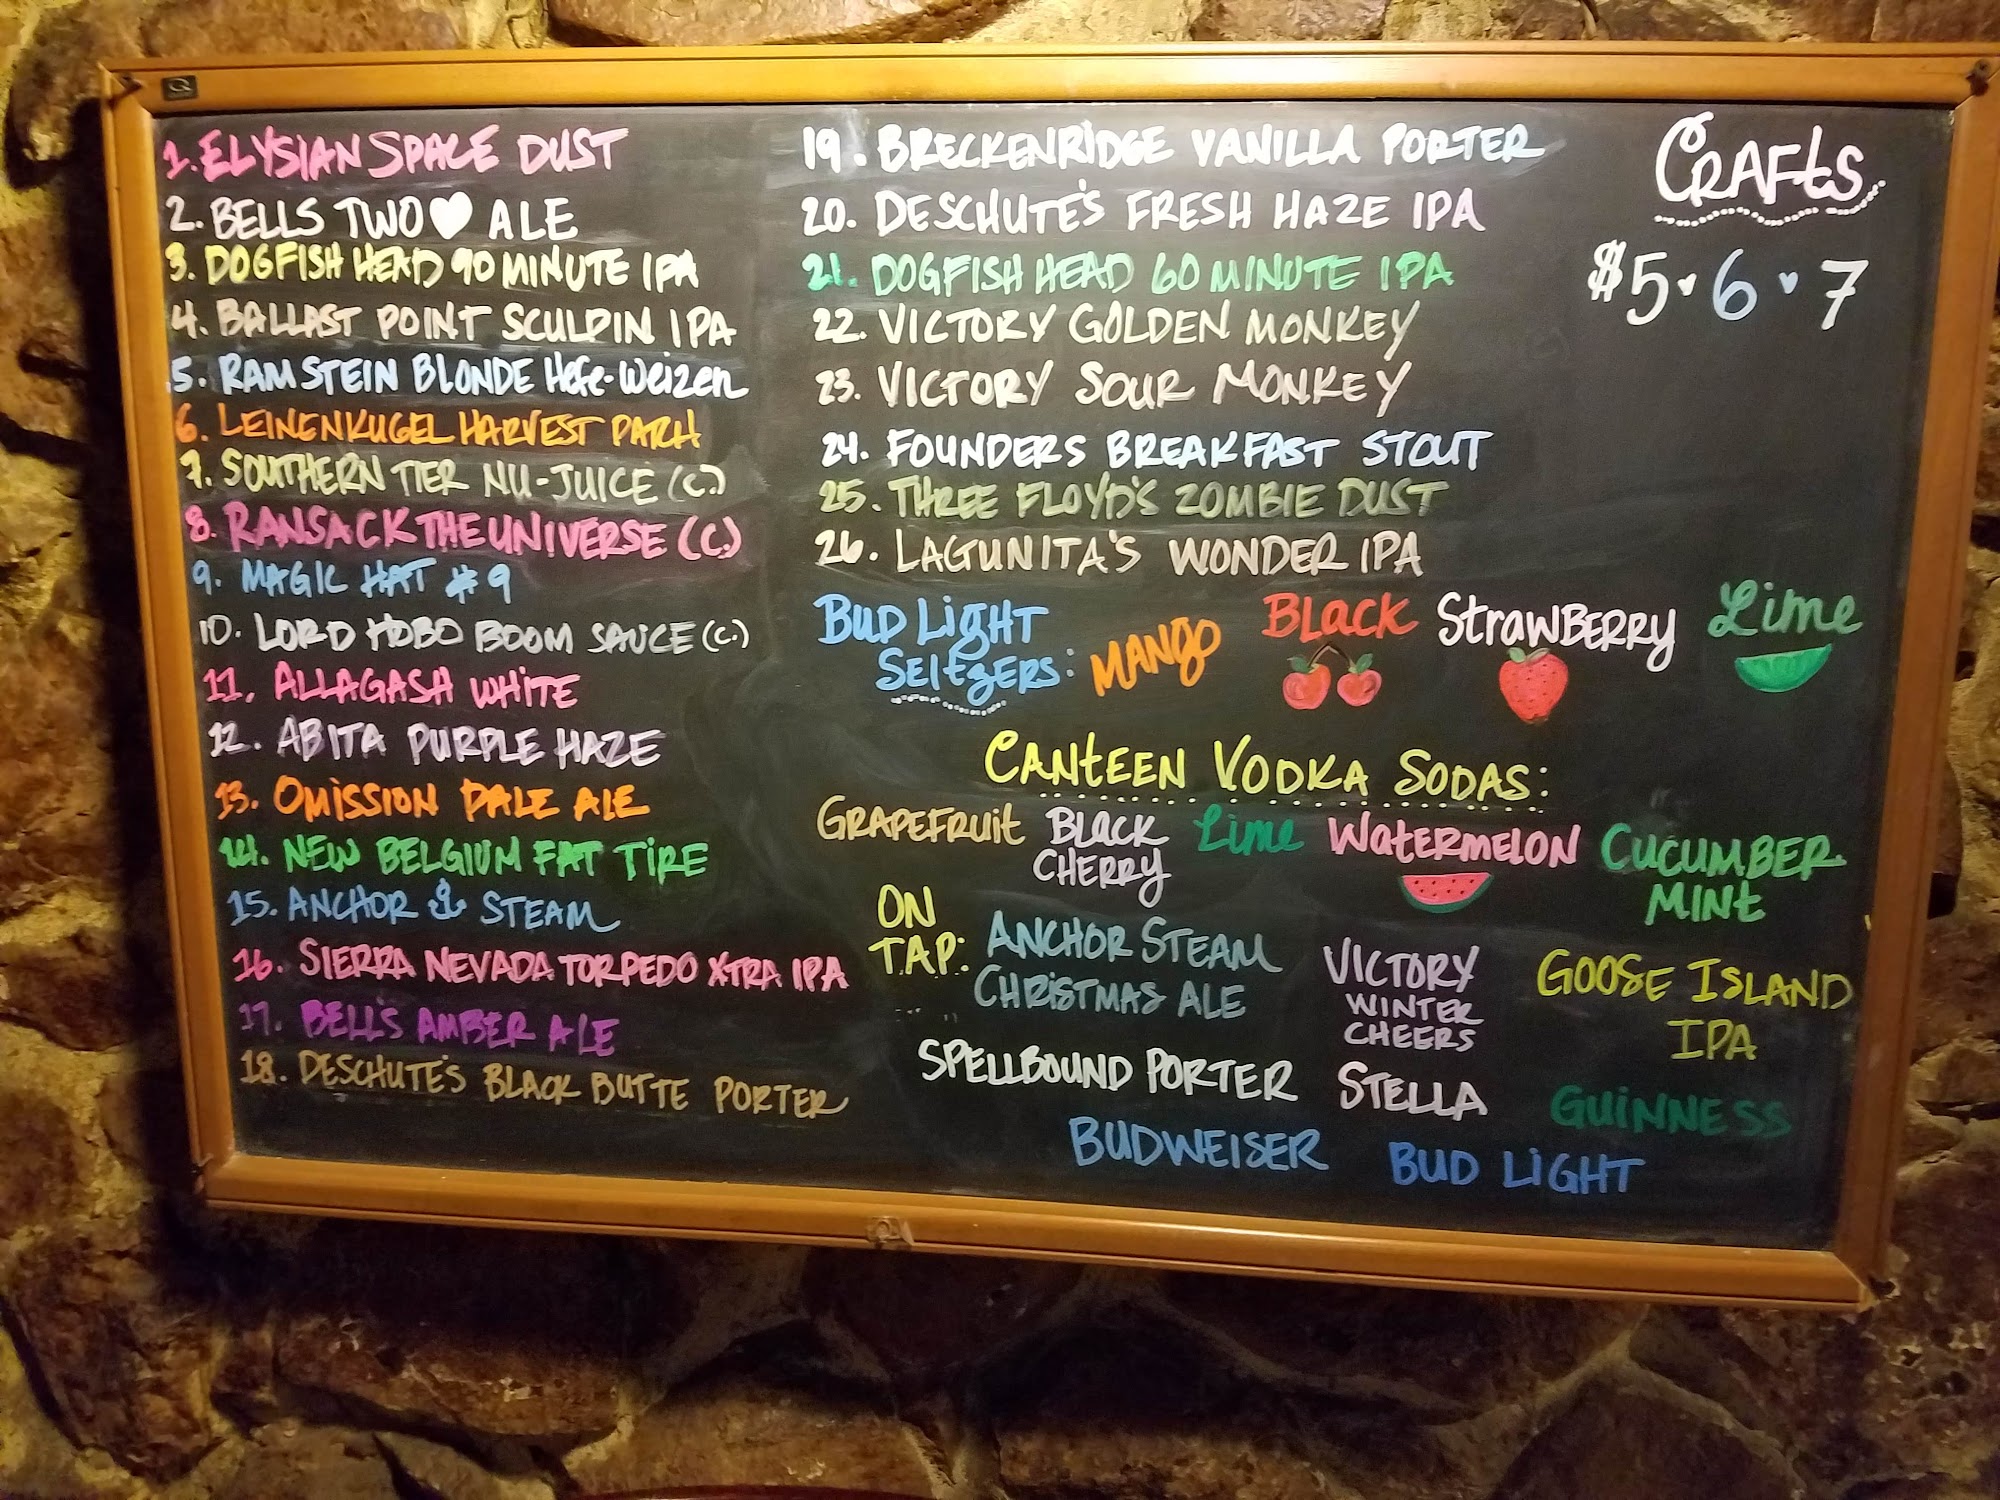 1. ELYSIAN SPACE DUST
2. BELLS TWO ♥ ALE
3. DOGFISH HEAD 90 MINUTE IPA
4. BALLAST POINT SCULPIN IPA
5. RAMSTEIN BLONDE Hefe-Weizen
6. LEINENKUGEL HARVEST PATCH
7. SOUTHERN TIER NU-JUICE (C.)
8. RANSACK THE UNIVERSE (C.)
9. MAGIC HAT #9
10. LORD HOBO BOOM SAUCE (C.)
11. ALLAGASH WHITE
12. ABITA PURPLE HAZE
13. OMISSION PALE ALE
14. NEW BELGIUM FAT TIRE
15. ANCHOR STEAM
16. SIERRA NEVADA TORPEDO XTRA IPA
17. BELL'S AMBER ALE
18. DESCHUTE'S BLACK BUTTE PORTER
19. BRECKENRIDGE VANILLA PORTER
20. DESCHUTE'S FRESH HAZE IPA
21. DOGFISH HEAD 60 MINUTE IPA
22. VICTORY GOLDEN MONKEY
23. VICTORY SOUR MONKEY
24. FOUNDERS BREAKFAST STOUT
25. THREE FLOYD'S ZOMBIE DUST
26. LAGUNITA'S WONDER IPA
CRAFTS
$5 ♥ 6 ♥ 7
BUD LIGHT
SELTZERS:
MANGO
BLACK
STRAWBERRY
Lime
CANTEEN VODKA SODAS:
GRAPEFRUIT
BLACK
CHERRY
Lime
WATERMELON
CUCUMBER
MINT
ON
TAP:
ANCHOR STEAM
CHRISTMAS ALE
VICTORY
WINTER
CHEERS
GOOSE ISLAND
IPA
SPELLBOUND PORTER
STELLA
GUINNESS
BUDWEISER
BUD LIGHT